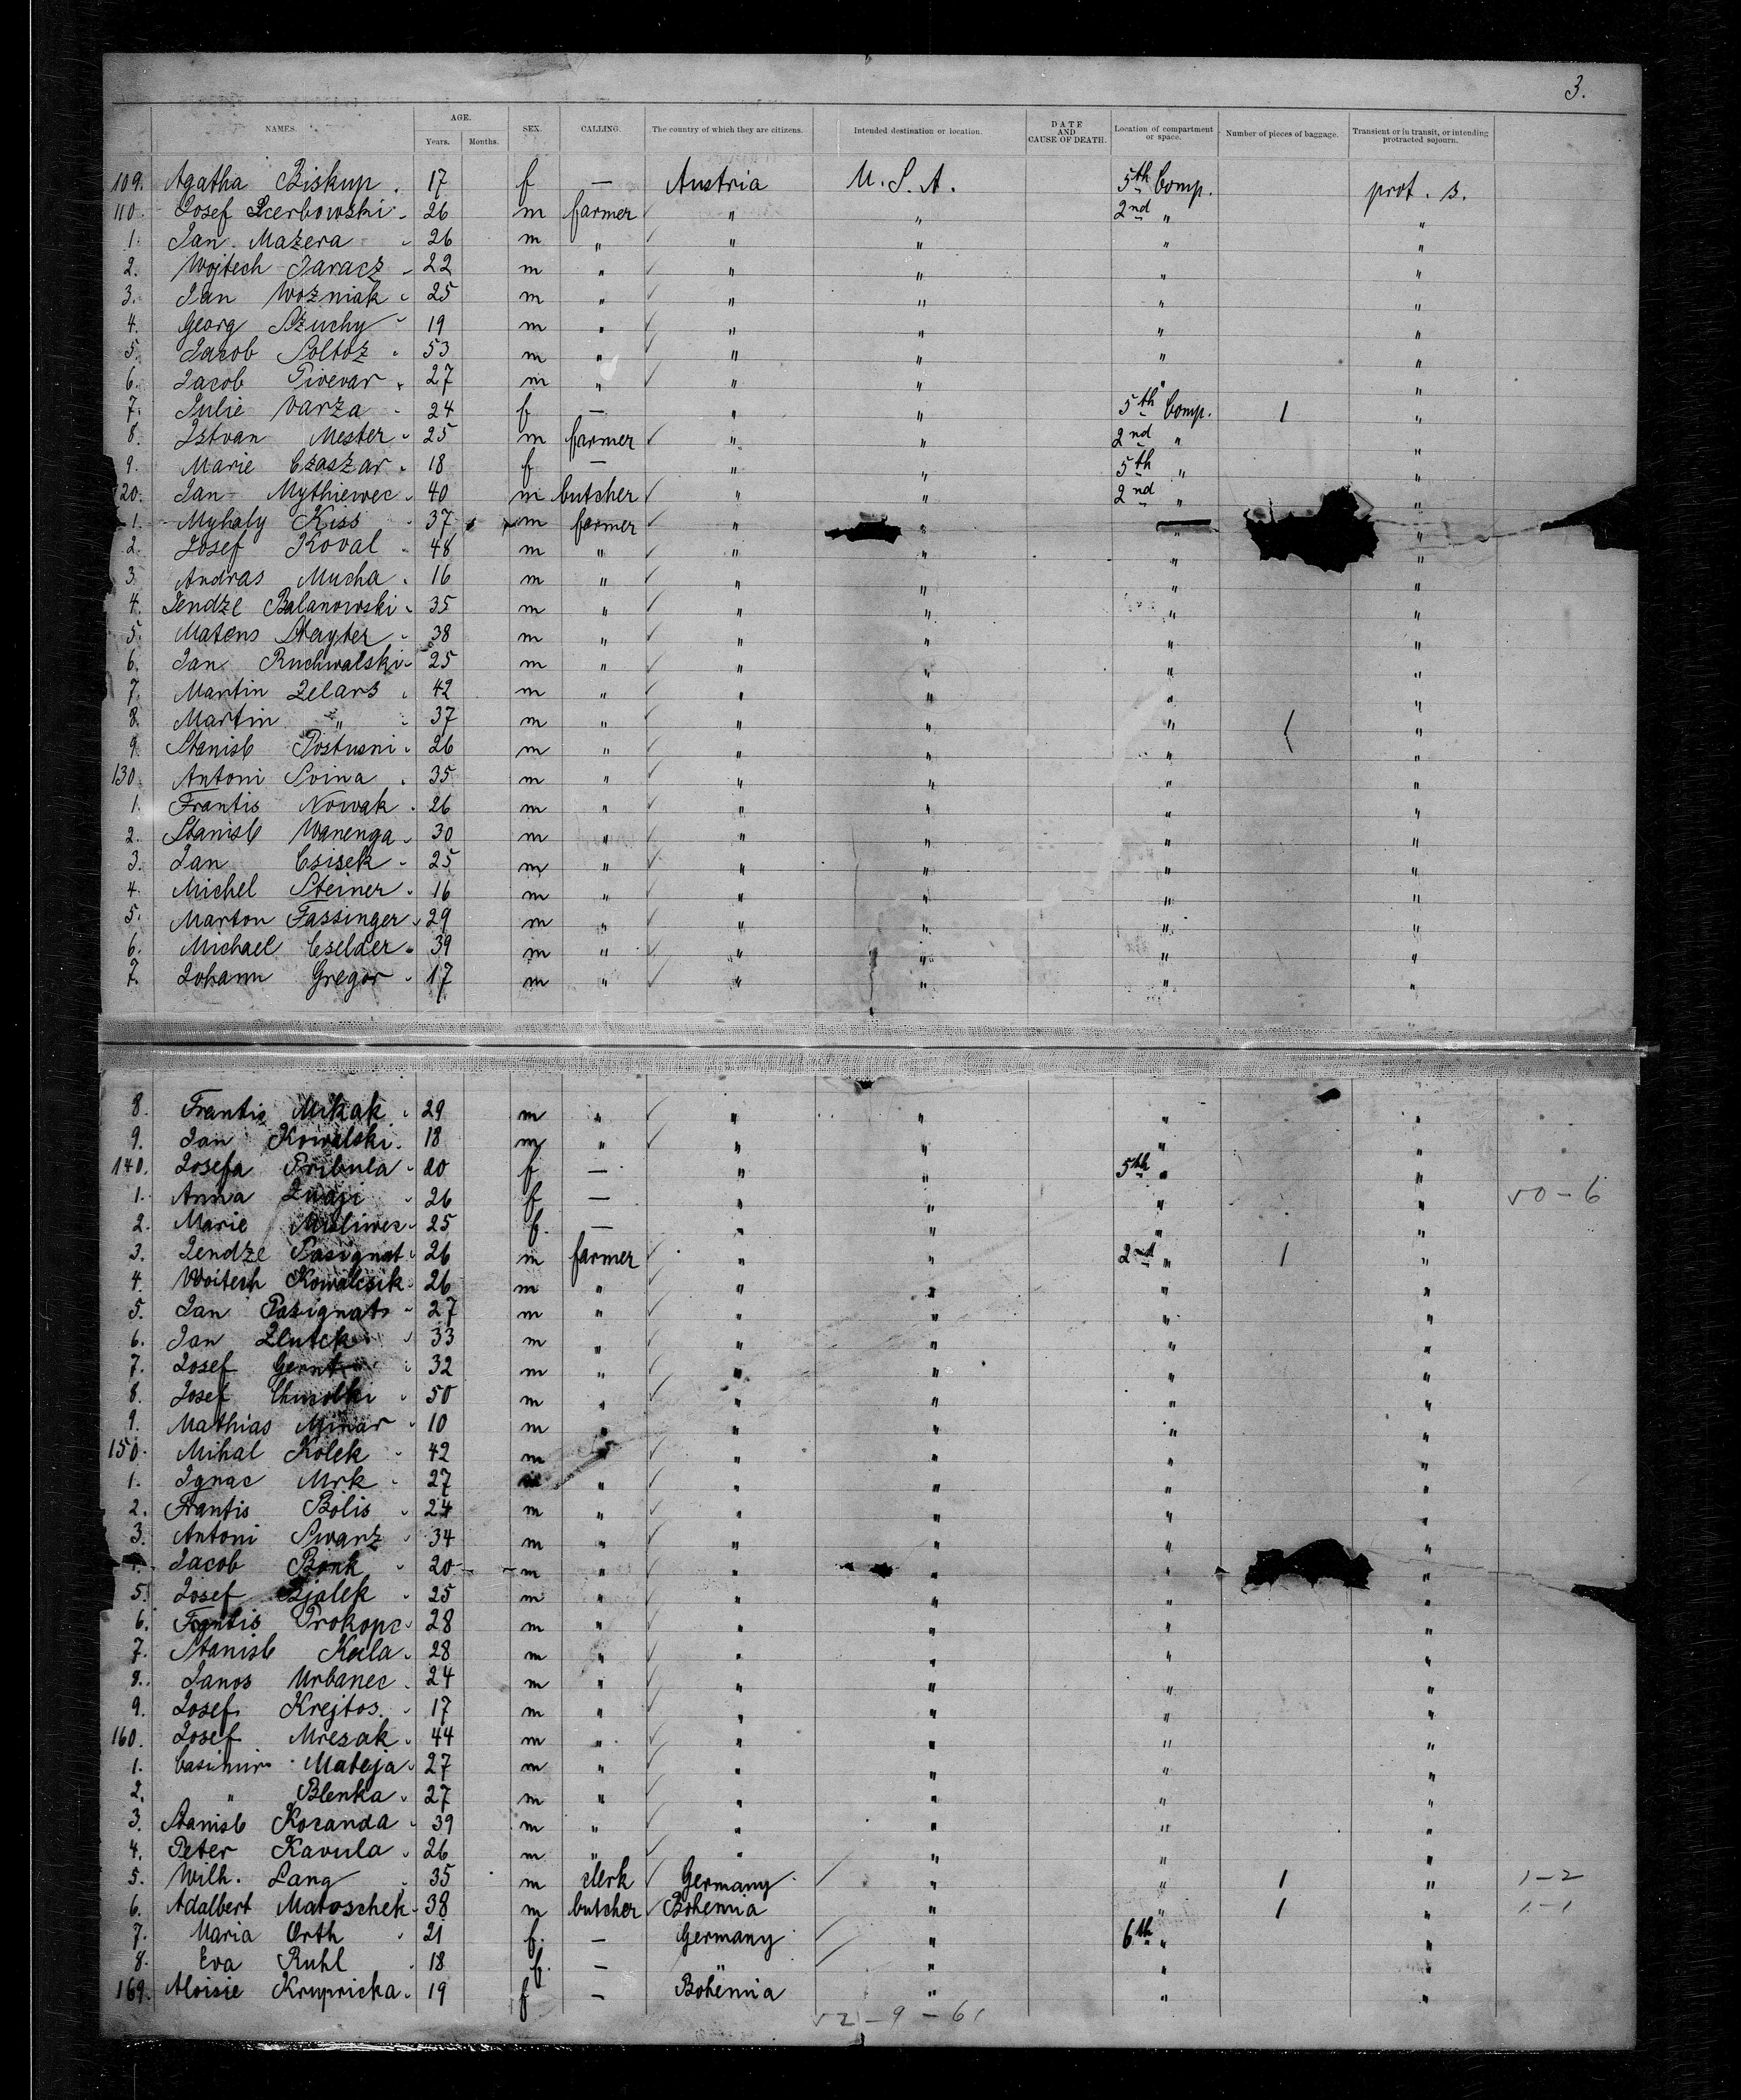 3.
NAMES. AGE. Years. Months. SEX. CALLING. The country of which they are citizens. Intended destination or location. DATE AND CAUSE OF DEATH. Location of compartment or space. Number of pieces of baggage. Transient or in transit, or intending protracted sojourn.
109. Agatha Biskup 17 f — Austria U.S.A. 5th Comp. prot. s.
110. Josef Scerbowski 26 m farmer " " 2nd " "
1. Jan Mazera 26 m " " " " "
2. Wojtech Jaracz 22 m " " " " "
3. Jan Wozniak 25 m " " " " "
4. Georg Szuchy 19 m " " " " "
5. Jacob Soltoz 53 m " " " " "
6. Jacob Pivevar 27 m " " " " "
7. Julie Varza 24 f — " " 5th Comp. 1 "
8. Istvan Mester 25 m farmer " " 2nd " "
9. Marie Czaszar 18 f — " " 5th " "
20. Jan Mythiewec 40 m butcher " " 2nd " "
1. Myhaly Kiss 37 m farmer " " " "
2. Josef Koval 48 m " " " " "
3. Andras Mucha 16 m " " " " "
4. Jendze Balanowski 35 m " " " " "
5. Matens Stayter 38 m " " " " "
6. Jan Ruchwalski 25 m " " " " "
7. Martin Zelars 42 m " " " " "
8. Martin " 37 m " " " " "
9. Stanisl Postusni 26 m " " " " "
130. Antoni Svina 35 m " " " " "
1. Frantis Nowak 26 m " " " " "
2. Stanisl Wanenga 30 m " " " " "
3. Jan Csisek 25 m " " " " "
4. Michel Steiner 16 m " " " " "
5. Marton Fassinger 29 m " " " " "
6. Michael Cselder 39 m " " " " "
7. Johann Gregor 17 m " " " " "
8. Frantis Mikak 29 m " " " " "
9. Jan Kowalski 18 m " " " " "
140. Josefa Pribula 20 f — " " 5th " "
1. Anna 26 f — " " " " 50-6
2. Marie Misliwec 25 f. — " " " "
3. Jendze Pasignat 26 m farmer " " 2nd " 1 "
4. Woitech Kowalcsik 26 m " " " " "
5. Jan Pasignat 27 m " " " " "
6. Jan Zlutek 33 m " " " " "
7. Josef Gernt 32 m " " " " "
8. Josef 50 m " " " " "
9. Mathias Minar 10 m " " " " "
150. Mihal Kolek 42 m " " " " "
1. Ignac Mrk 27 " " " " "
2. Frantis Bolis 24 m " " " " "
3. Antoni Swarz 34 m " " " " "
Jacob Bonk 20 m " " " " "
5. Josef Bjalek 25 m " " " " "
6. Frantis Prokopc 28 m " " " " "
7. Stanisl Kula 28 m " " " " "
8. Janos Urbanec 24 m " " " " "
9. Josef Krejtos 17 m " " " " "
160. Josef Mresak 44 m " " " " "
1. Casimir Mateja 27 m " " " " "
2. " Blenka 27 m " " " " "
3. Stanisl Koranda 39 m " " " " "
4. Peter Kavula 26 m " " " " "
5. Wilh. Lang 35 m clerk Germany " " 1 " 1-2
6. Adalbert Matoschek 38 m butcher Bohemia " " 1 " 1-1
7. Maria Orth 21 f. — Germany " 6th " "
8. Eva Ruhl 18 f. — " " " "
169. Aloisie Krupricka 19 f — Bohemia " " "
52-9-61